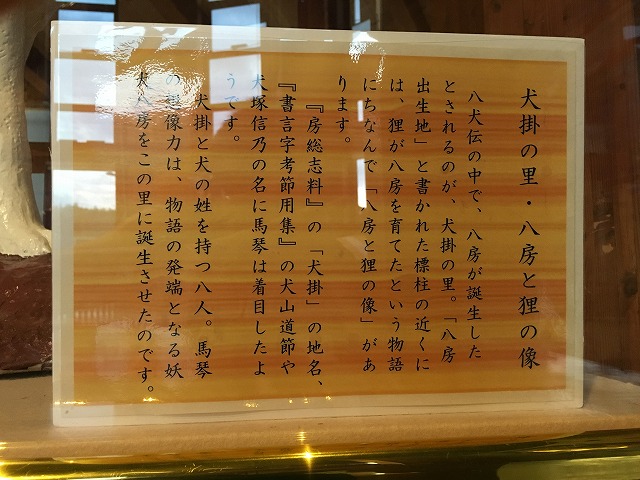 犬掛の里・八房と狸の像
八犬伝の中で、八房が誕生した
とされるのが、犬掛の里。「八房
出生地」と書かれた標柱の近くに
は、狸が八房を育てたという物語
にちなんで「八房と狸の像」があ
ります。
『房総志料』の「犬掛」の地名、
『書言字考節用集』の犬山道節や
犬塚信乃の名に馬琴は着目したよ
うです。
犬掛と犬の姓を持つ八人。馬琴
の想像力は、物語の発端となる妖
犬八房をこの里に誕生させたのです。